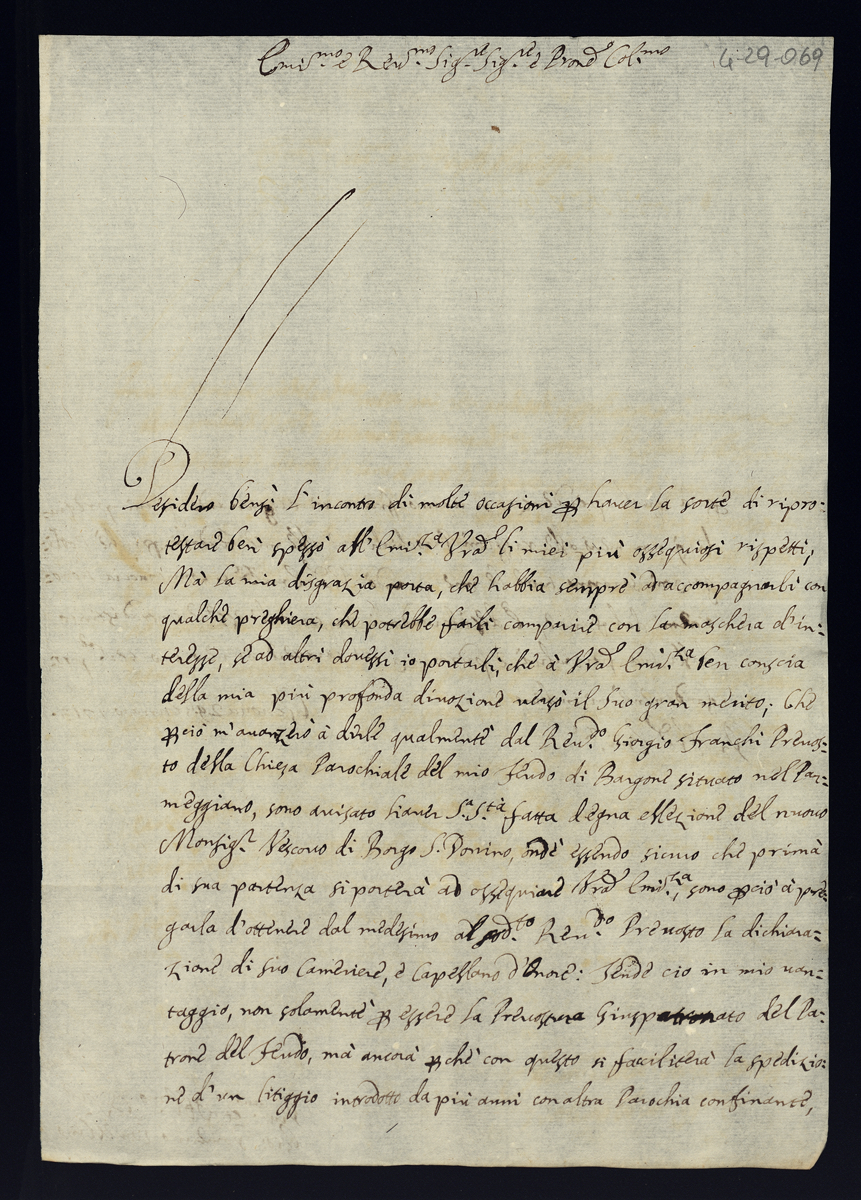 Emin.mo e Rev.mo Sig.re Sig.re e Pron.e Col.mo
4-29-069
Desidero bensì l'incontro di molte occasioni per haver la sorte di ripro=
testare ben spesso all'Emin.za Vra li miei più ossequiosi rispetti;
Mà la mia disgrazia porta, che habbia sempre ad accompagnarli con
qualche preghiera, che potrebbe farli comparire con la maschera d'in=
teresse, se ad altri dovessi io portarli, che à Vra Emin.za ben conscia
della mia più profonda divozione verso il suo gran merito; Che
perciò m'avanzerò à dirle qualmente dal Rev.do Giorgio Franchi Prevos=
to della Chiesa Parochiale del mio Feudo di Bargone situato nel Par=
meggiano, sono avisato haver S.a S.tà fatta degna ellezione del nuovo
Monsig.r Vescovo di Borgo S. Donino, onde essendo sicuro che prima
di sua partenza si porterà ad ossequiare Vra Emin.za, sono perciò à pre=
garla d'ottenere dal medesimo al sud.to Rev.do Prevosto la dichiara=
zione di suo Cameriere, e Capellano d'Onore: Rende ciò in mio van=
taggio, non solamente per essere la Prevostura Giuspatronato del Pa=
trone del Feudo, mà ancora perche con questo si faciliterà la spedizio=
ne d'un litiggio introdotto da più anni con altra Parochia confinante,